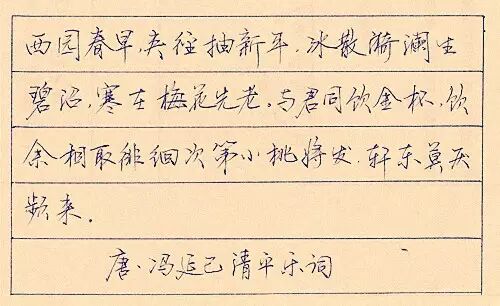 西园春早，夹径抽新草，冰散漪澜生
碧沼，寒在梅花先老，与君同饮金杯，饮
余相取徘徊次第小桃将发，轩车莫厌
频来．
唐·冯延巳清平乐词